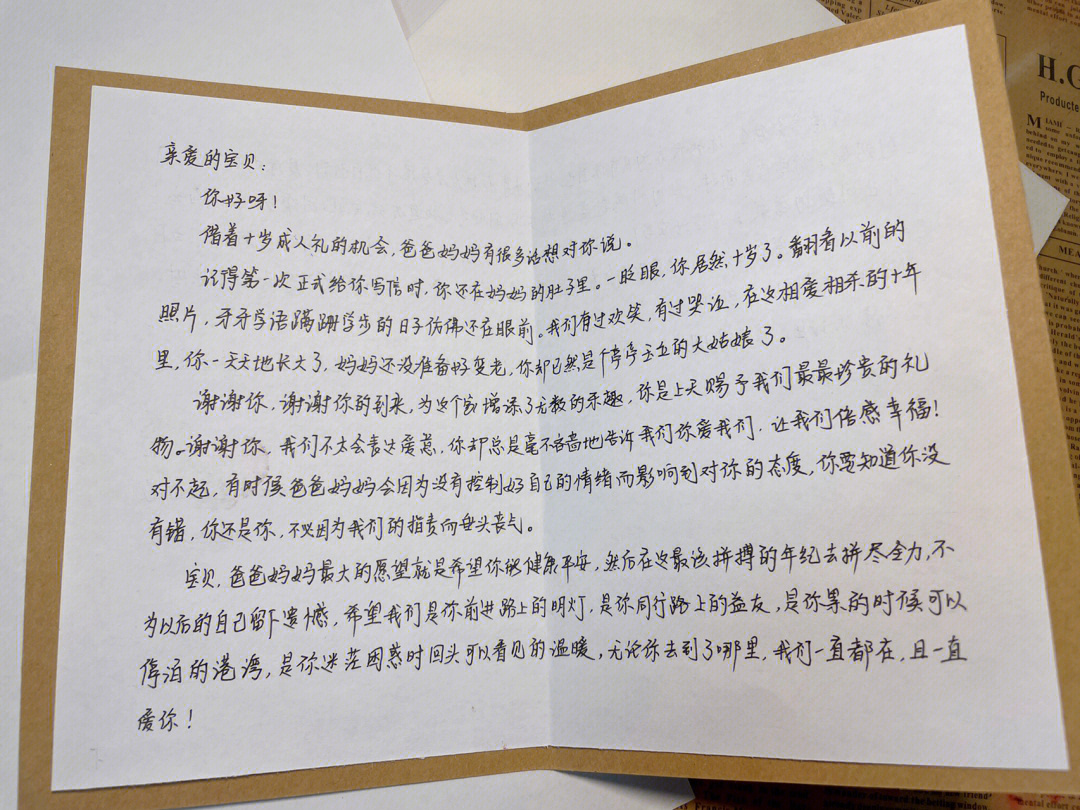 亲爱的宝贝：
你好呀！
借着十岁成人礼的机会，爸爸妈妈有很多话想对你说。
记得第一次正式给你写信时，你还在妈妈的肚子里。一眨眼，你居然十岁了。翻看以前的
照片，牙牙学语蹒跚学步的日子仿佛还在眼前。我们有过欢笑，有过哭泣，在这相爱相杀的十年
里，你一天天地长大了，妈妈还没准备好变老，你却已然是个亭亭玉立的大姑娘了。
谢谢你，谢谢你的到来，为这个家增添了无数的乐趣，你是上天赐予我们最最珍贵的礼
物。谢谢你，我们不太会表达爱意，你却总是毫不吝啬地告诉我们你爱我们，让我们倍感幸福！
对不起，有时候爸爸妈妈会因为没有控制好自己的情绪而影响到对你的态度，你要知道你没
有错，你还是你，不必因为我们的指责而垂头丧气。
宝贝，爸爸妈妈最大的愿望就是希望你能健康平安，然后在这最该拼搏的年纪去拼尽全力，不
为以后的自己留下遗憾，希望我们是你前进路上的明灯，是你同行路上的益友，是你累的时候可以
停泊的港湾，是你迷茫困惑时回头可以看见的温暖，无论你去到了哪里，我们一直都在，且一直
爱你！
H.
Producte